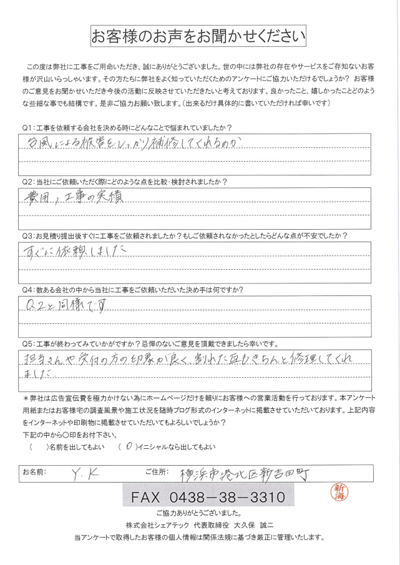 お客様のお声をお聞かせください
この度は弊社に工事をご用命いただき、誠にありがとうございました。世の中には弊社の存在やサービスをご存知ないお客
様が沢山いらっしゃいます。その方たちに弊社をよく知っていただくためのアンケートにご協力いただけるでしょうか? お客様
のご意見をお聞かせいただき今後の活動に反映させていきたいと考えております。良かったこと、嬉しかったことどのよう
な些細な事でも結構です。是非ご協力お願い致します。(出来るだけ具体的に書いていただければ幸いです)
Q1:工事を依頼する会社を決める時にどんなことで悩まれていましたか?
台風による被害をしっかり補修してくれるのか
Q2:当社にご依頼いただく際にどのような点を比較・検討されましたか?
費用、工事の実績
Q3:お見積り提出後すぐに工事をご依頼されましたか?もしご依頼されなかったとしたらどんな点が不安でしたか?
すぐに依頼しました
Q4:数ある会社の中から当社に工事をご依頼いただいた決め手は何ですか?
Q2と同様です
Q5:工事が終わってみていかがですか?忌憚のないご意見を頂戴できましたら幸いです。
担当さんや受付の方の印象が良く、割れた瓦もきちんと修理してくれ
ました
*弊社は広告宣伝費を極力かけない為にホームページだけを頼りにお客様への営業活動を行っております。本アンケート
用紙またはお客様宅の調査風景や施工状況を随時ブログ形式のインターネットに掲載させていただいております。上記内容
をインターネットや印刷物に掲載させていただいてもよろしいでしょうか?
下記の中から〇印をお付下さい。
( )名前を出してもよい (〇)イニシャルなら出してもよい
お名前: Y.K ご住所: 横浜市港北区新吉田町
FAX 0438-38-3310
新海
ご協力ありがとうございました。
株式会社シェアテック 代表取締役 大久保 誠二
当アンケートで取得したお客様の個人情報は関係法規に基づき厳正に管理いたします。